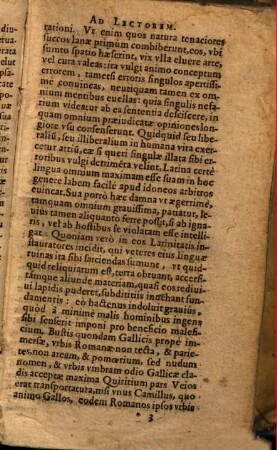 AD LECTOREM.
rationi. Vt enim quos natura tenaciores
succos lanæ primùm combiberunt, eos, vbi
sumto spatio hæserint, vix vlla eluere arte,
vel cura valeas: ita vulgi animo conceptum
errorem, tametsi erroris singulos apertissi-
mè conuincas, neutiquam tamen ex om-
nium mentibus euellas: quia singulis nefa-
rium videatur ab ea sententia desciscere, in
quam omnium præiudicatæ opiniones lon-
giore vsu consenserunt. Quidquid seu libe-
ralium, seu illiberalium in humana vita exer-
cetur artiū, ex iis queri singulæ illata sibi er-
roribus vulgi detrimēta velint. Latina certè
lingua omnium maximam esse suam in hoc
genere labem facilè apud idoneos arbitros
conuincat. Sua porrò hæc damna vt ægerrimè,
tamquam omnium grauissima, patiatur, le-
uius tamen aliquanto ferre possit, si ab igna-
ris, vel ab hostibus se violatam esse intelli-
gat. Quoniam verò in eos Latinitatis in-
stauratores incidit, qui veteres eius linguæ
ruinas ita sibi sarciendas sumunt, vt quid-
quid reliquiarum est, terra obruant, accersi-
támque aliunde materiam, quasi costediuī
ui lapidis puderet, subdititiis inædificant fun-
damentis: eò hactenus indoluit grauius,
quòd à minimè malis hominibus ingens
sibi senserit imponi pro beneficio malefi-
cium. Bustis quondam Gallicis propè im-
mersæ, vrbis Romanæ non tecta, & parie-
tes, non aream, & pomœrium, sed nudum
nomen, & vrbis vmbram odio Gallicæ cla-
dis acceptæ maxima Quiritium pars Veios
erat transportatura, nisi vnus Camillus, quo
animo Gallos, eodem Romanos ipsos vrbis
* 3